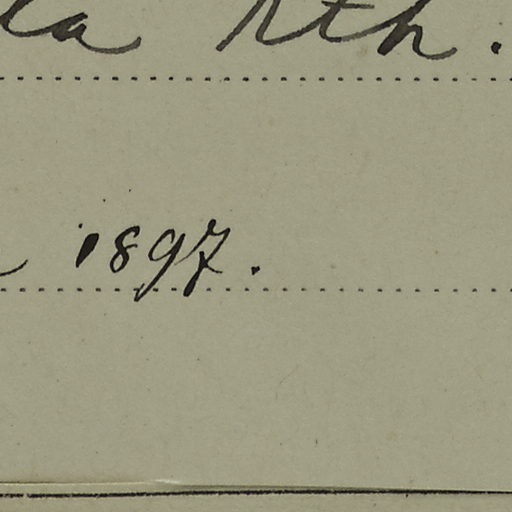 la Rth.
1897.